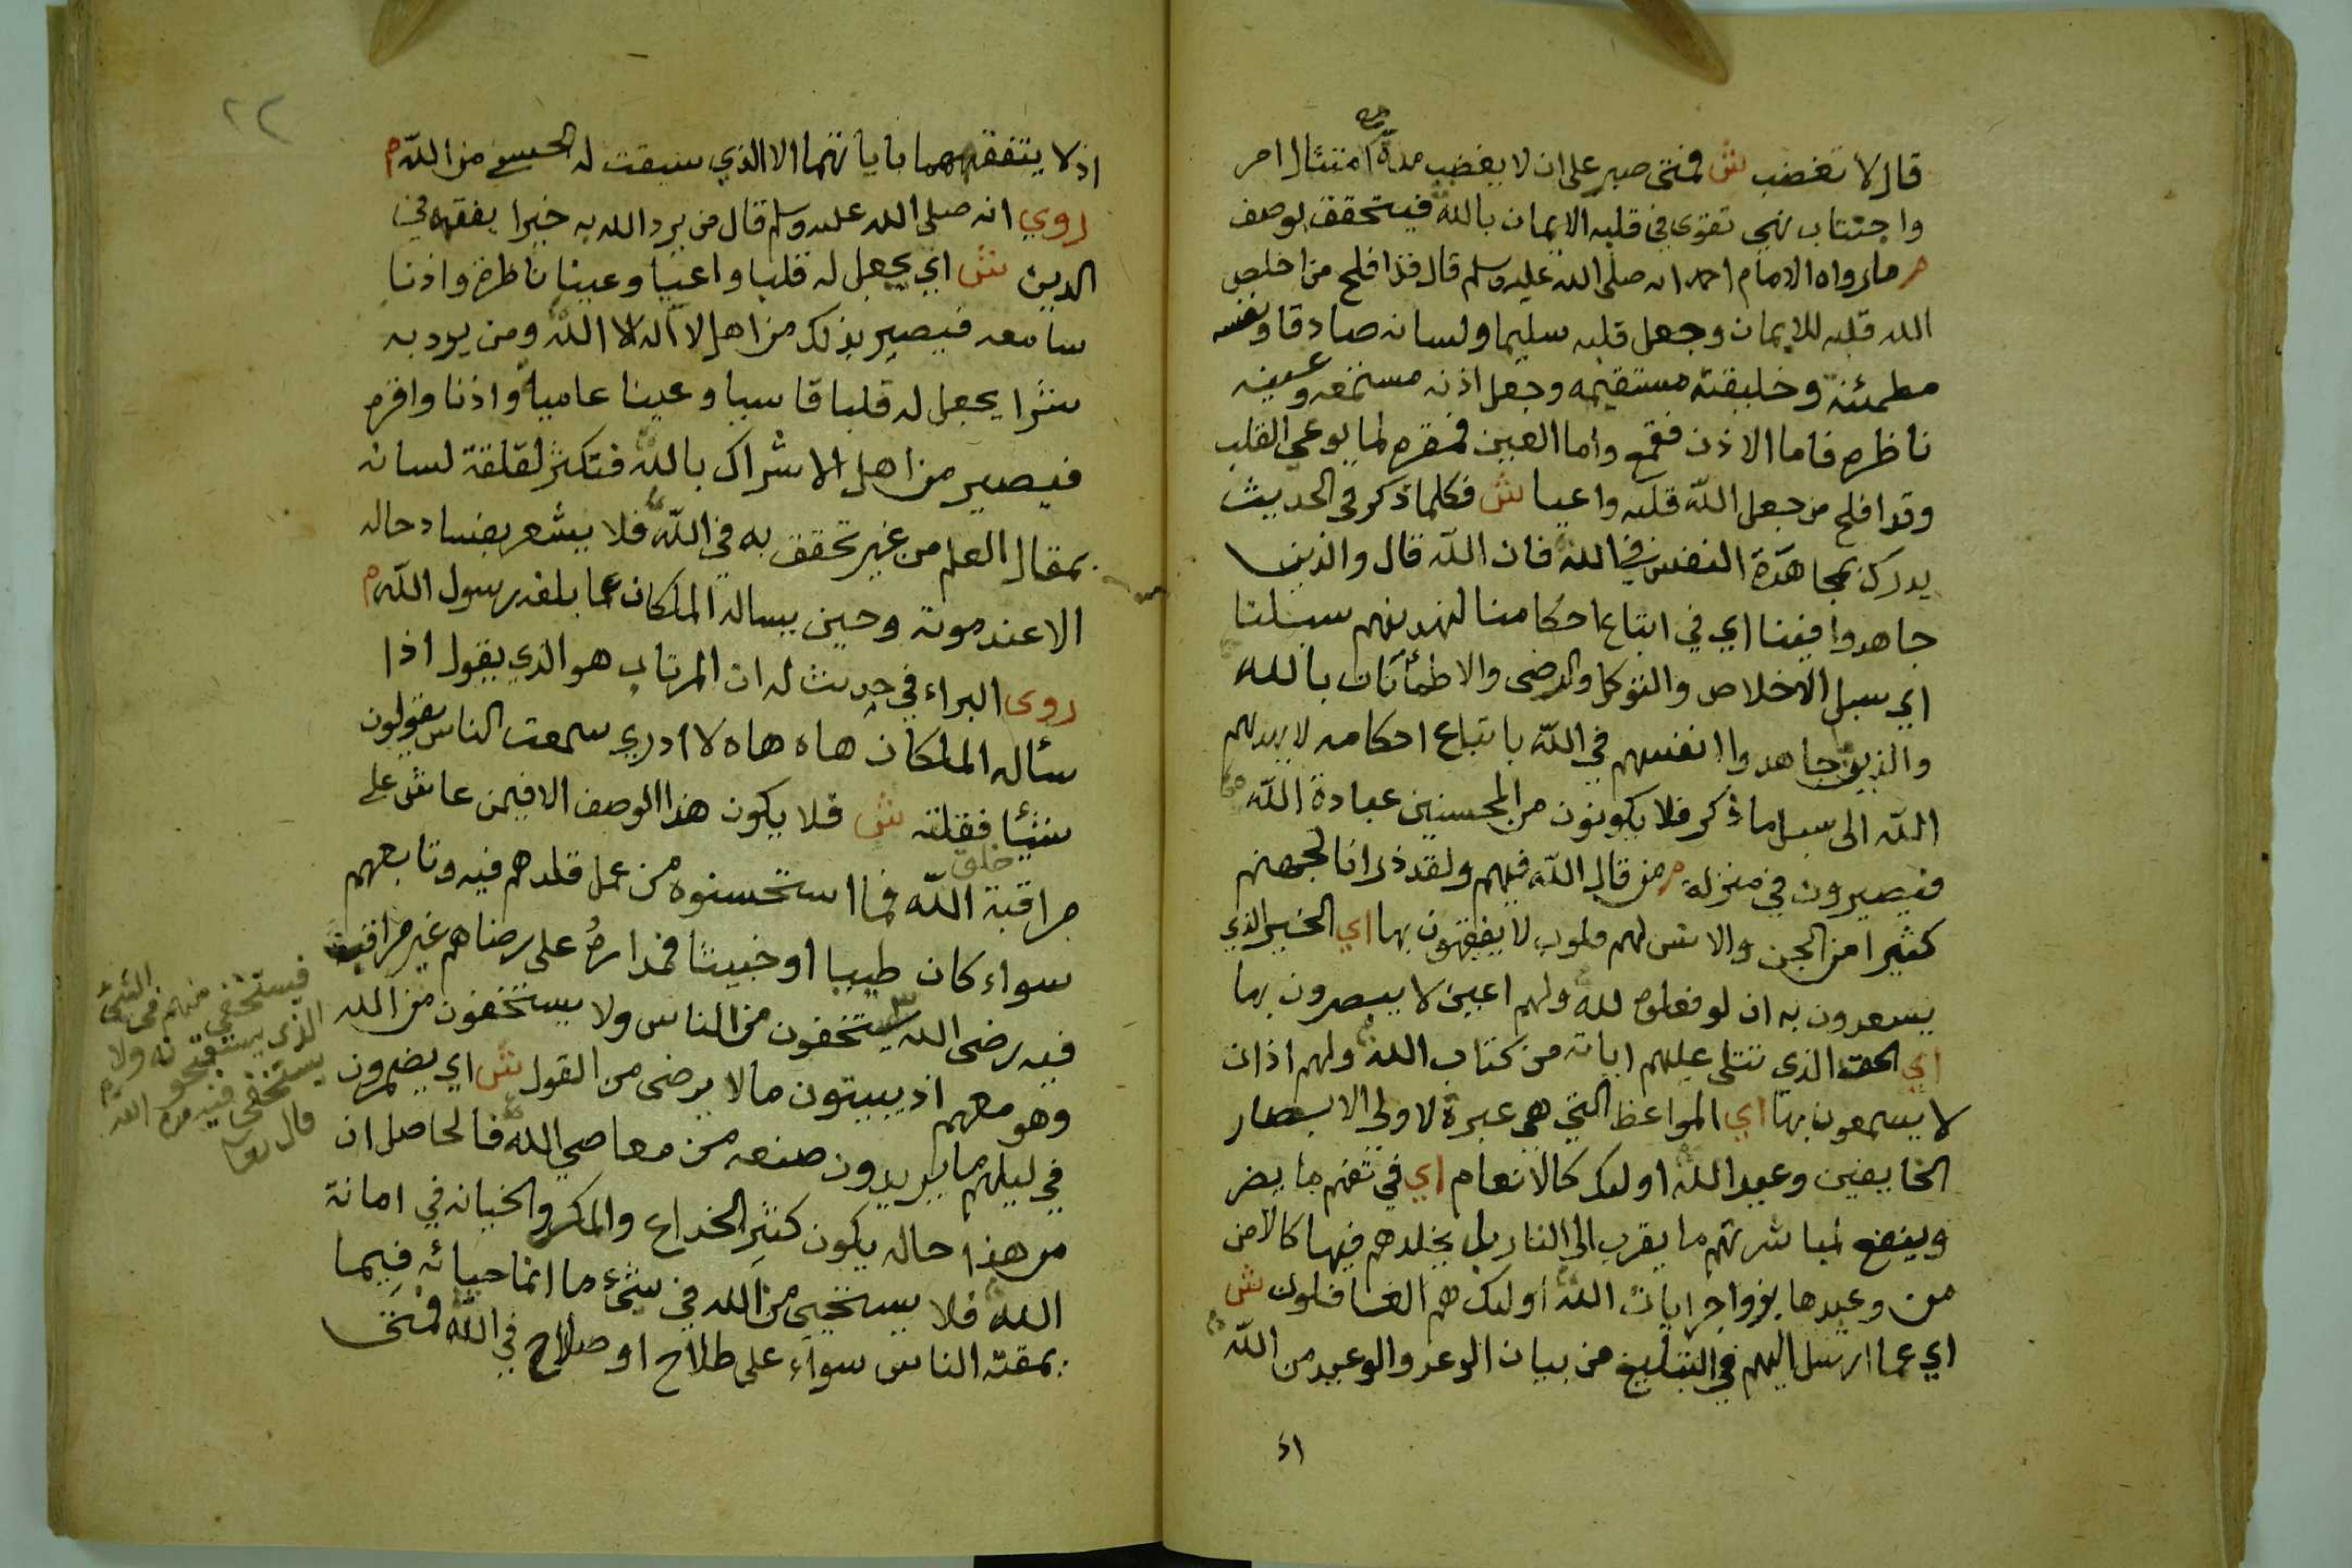 قال لا تغضب ش فمتى صبر على ان لا يغضب مدة امتثال امر
صح
واجتناب نهي تقوى في قلبه الايمان بالله فيتحقق بوصف
م ما رواه الامام احمد انه صلى الله عليه وسلم قال قد افلح من اخلص
الله قلبه للايمان وجعل قلبه سليما ولسانه صادقا ونفسه
مطمئنة وخليقته مستقيمه وجعل اذنه مستمعه وعينه
ناظره فاما الاذن فقمع واما العين فمقره لما يوعي القلب
وقد افلح من جعل الله قلبه واعيا ش فكلما ذكر في الحديث
يدرك بمجاهدة النفس في الله فان الله قال والذين
جاهدوا فينا اي في اتباع احكامنا لنهدينهم سبلنا
اي سبل الاخلاص والتوكل والرضى والاطمأنان بالله
والذين جاهدوا انفسهم في الله باتباع احكامه لا يهديهم
الله الى سبل ما ذكر فلا يكونون من المحسنين عبادة الله
فيصيرون في منزلة م من قال الله فيهم ولقد ذرانا لجهنم
كثيرا من الجن والانس لهم قلوب لا يفقهون بها اي الخير الذي
يسعدون به ان لو فعلوه لله ولهم اعين لا يبصرون بها
اي الحق الذي تتلى عليهم اياته من كتاب الله ولهم اذان
لا يسمعون بها اي المواعظ التي هي عبرة لاولي الابصار
الخايفين وعيد الله اولئك كالانعام اي في ما يضر
وينفع لمباشرتهم ما يقرب الى النار بل يخلدهم فيها كالامن
من وعيدها بزواجر ايات الله اولئك هم الغافلون ش
اي عما ارسل اليهم في التبليغ من بيان الوعد والوعيد من الله
اذ
٢٢
اذ لا يتفقه بها باياتهما الا الذي سبقت له الحسنى من الله م
روي انه صلى الله عليه وسلم قال من يرد الله به خيرا يفقهه في
الدين ش اي يجعل له قلبا واعيا وعينا ناظرة واذنا
سامعه فيصير بذلك من اهل لا اله الا الله ومن يرد به
شرا يجعل له قلبا قاسيا وعينا عامية واذنا واقره
فيصير من اهل الاشراك بالله فتكثر لقلقة لسانه
بمقال العلم من غير تحقق به في الله فلا يشعر بفساد حاله
الا عند موته وحين يساله الملكان عما بلغه رسول الله م
روى البراء في حديث له ان المرتاب هو الذي يقول اذا
سأله الملكان هاه هاه لا ادري سمعت الناس يقولون
شيئا فقلته ش فلا يكون هذا الوصف الا فيمن عاش على
مراقبة خلق الله فما استحسنوه من عمل قلدهم فيه وتابعهم
سواء كان طيبا او خبيثا فمداره على رضاهم غير مراقبة
فيه رضى الله يستخفون من الناس ولا يستخفون من الله
وهو معهم اذ يبيتون ما لا يرضى من القول ش اي يضمرون
في ليلهم ما يريدون صنعه من معاصي الله فالحاصل ان
من هذا حاله يكون كثير الخداع والمكر والخيانه في امانة
الله فلا يستحيي من الله في شيء ما انما حيائه فيما
يمقته الناس سواء على طلاح او صلاح في الله فمتى
فيستخفي منهم في الشئ
الذي يستقبحونه ولا
يستخفي فيه من الله
قال تعا